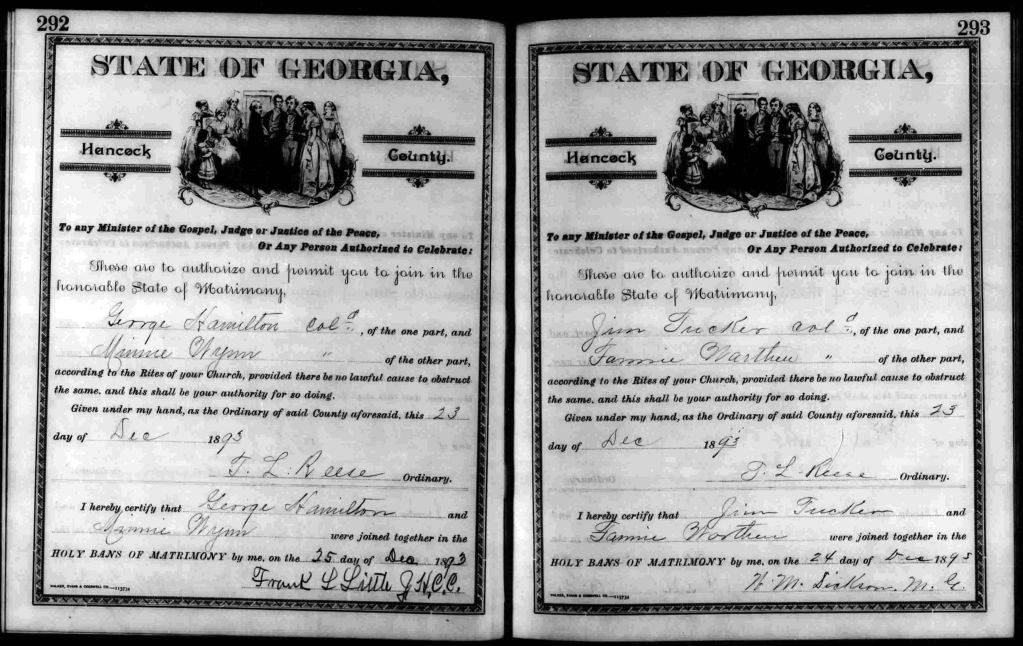 292
STATE OF GEORGIA,
Hancock County.
To any Minister of the Gospel, Judge or Justice of the Peace,
Or Any Person Authorized to Celebrate:
These are to authorize and permit you to join in the
honorable State of Matrimony,
George Hamilton Col d, of the one part, and
Minnie Wynn " of the other part,
according to the Rites of your Church, provided there be no lawful cause to obstruct
the same, and this shall be your authority for so doing.
Given under my hand, as the Ordinary of said County aforesaid, this 23
day of Dec 1893
T. L. Reese Ordinary.
I hereby certify that George Hamilton and
Minnie Wynn were joined together in the
HOLY BANS OF MATRIMONY by me, on the 25 day of Dec 1893
Frank L Little J H.C.C.
WALKER, EVANS & COGSWELL CO.—113734
293
STATE OF GEORGIA,
Hancock County.
To any Minister of the Gospel, Judge or Justice of the Peace,
Or Any Person Authorized to Celebrate:
These are to authorize and permit you to join in the
honorable State of Matrimony,
Jim Tucker Col d, of the one part, and
Fannie Warthen " of the other part,
according to the Rites of your Church, provided there be no lawful cause to obstruct
the same, and this shall be your authority for so doing.
Given under my hand, as the Ordinary of said County aforesaid, this 23
day of Dec 1893
T. L. Reese Ordinary.
I hereby certify that Jim Tucker and
Fannie Warthen were joined together in the
HOLY BANS OF MATRIMONY by me, on the 24 day of Dec 1893
W. M. Dickson, M. G.
WALKER, EVANS & COGSWELL CO.—113734